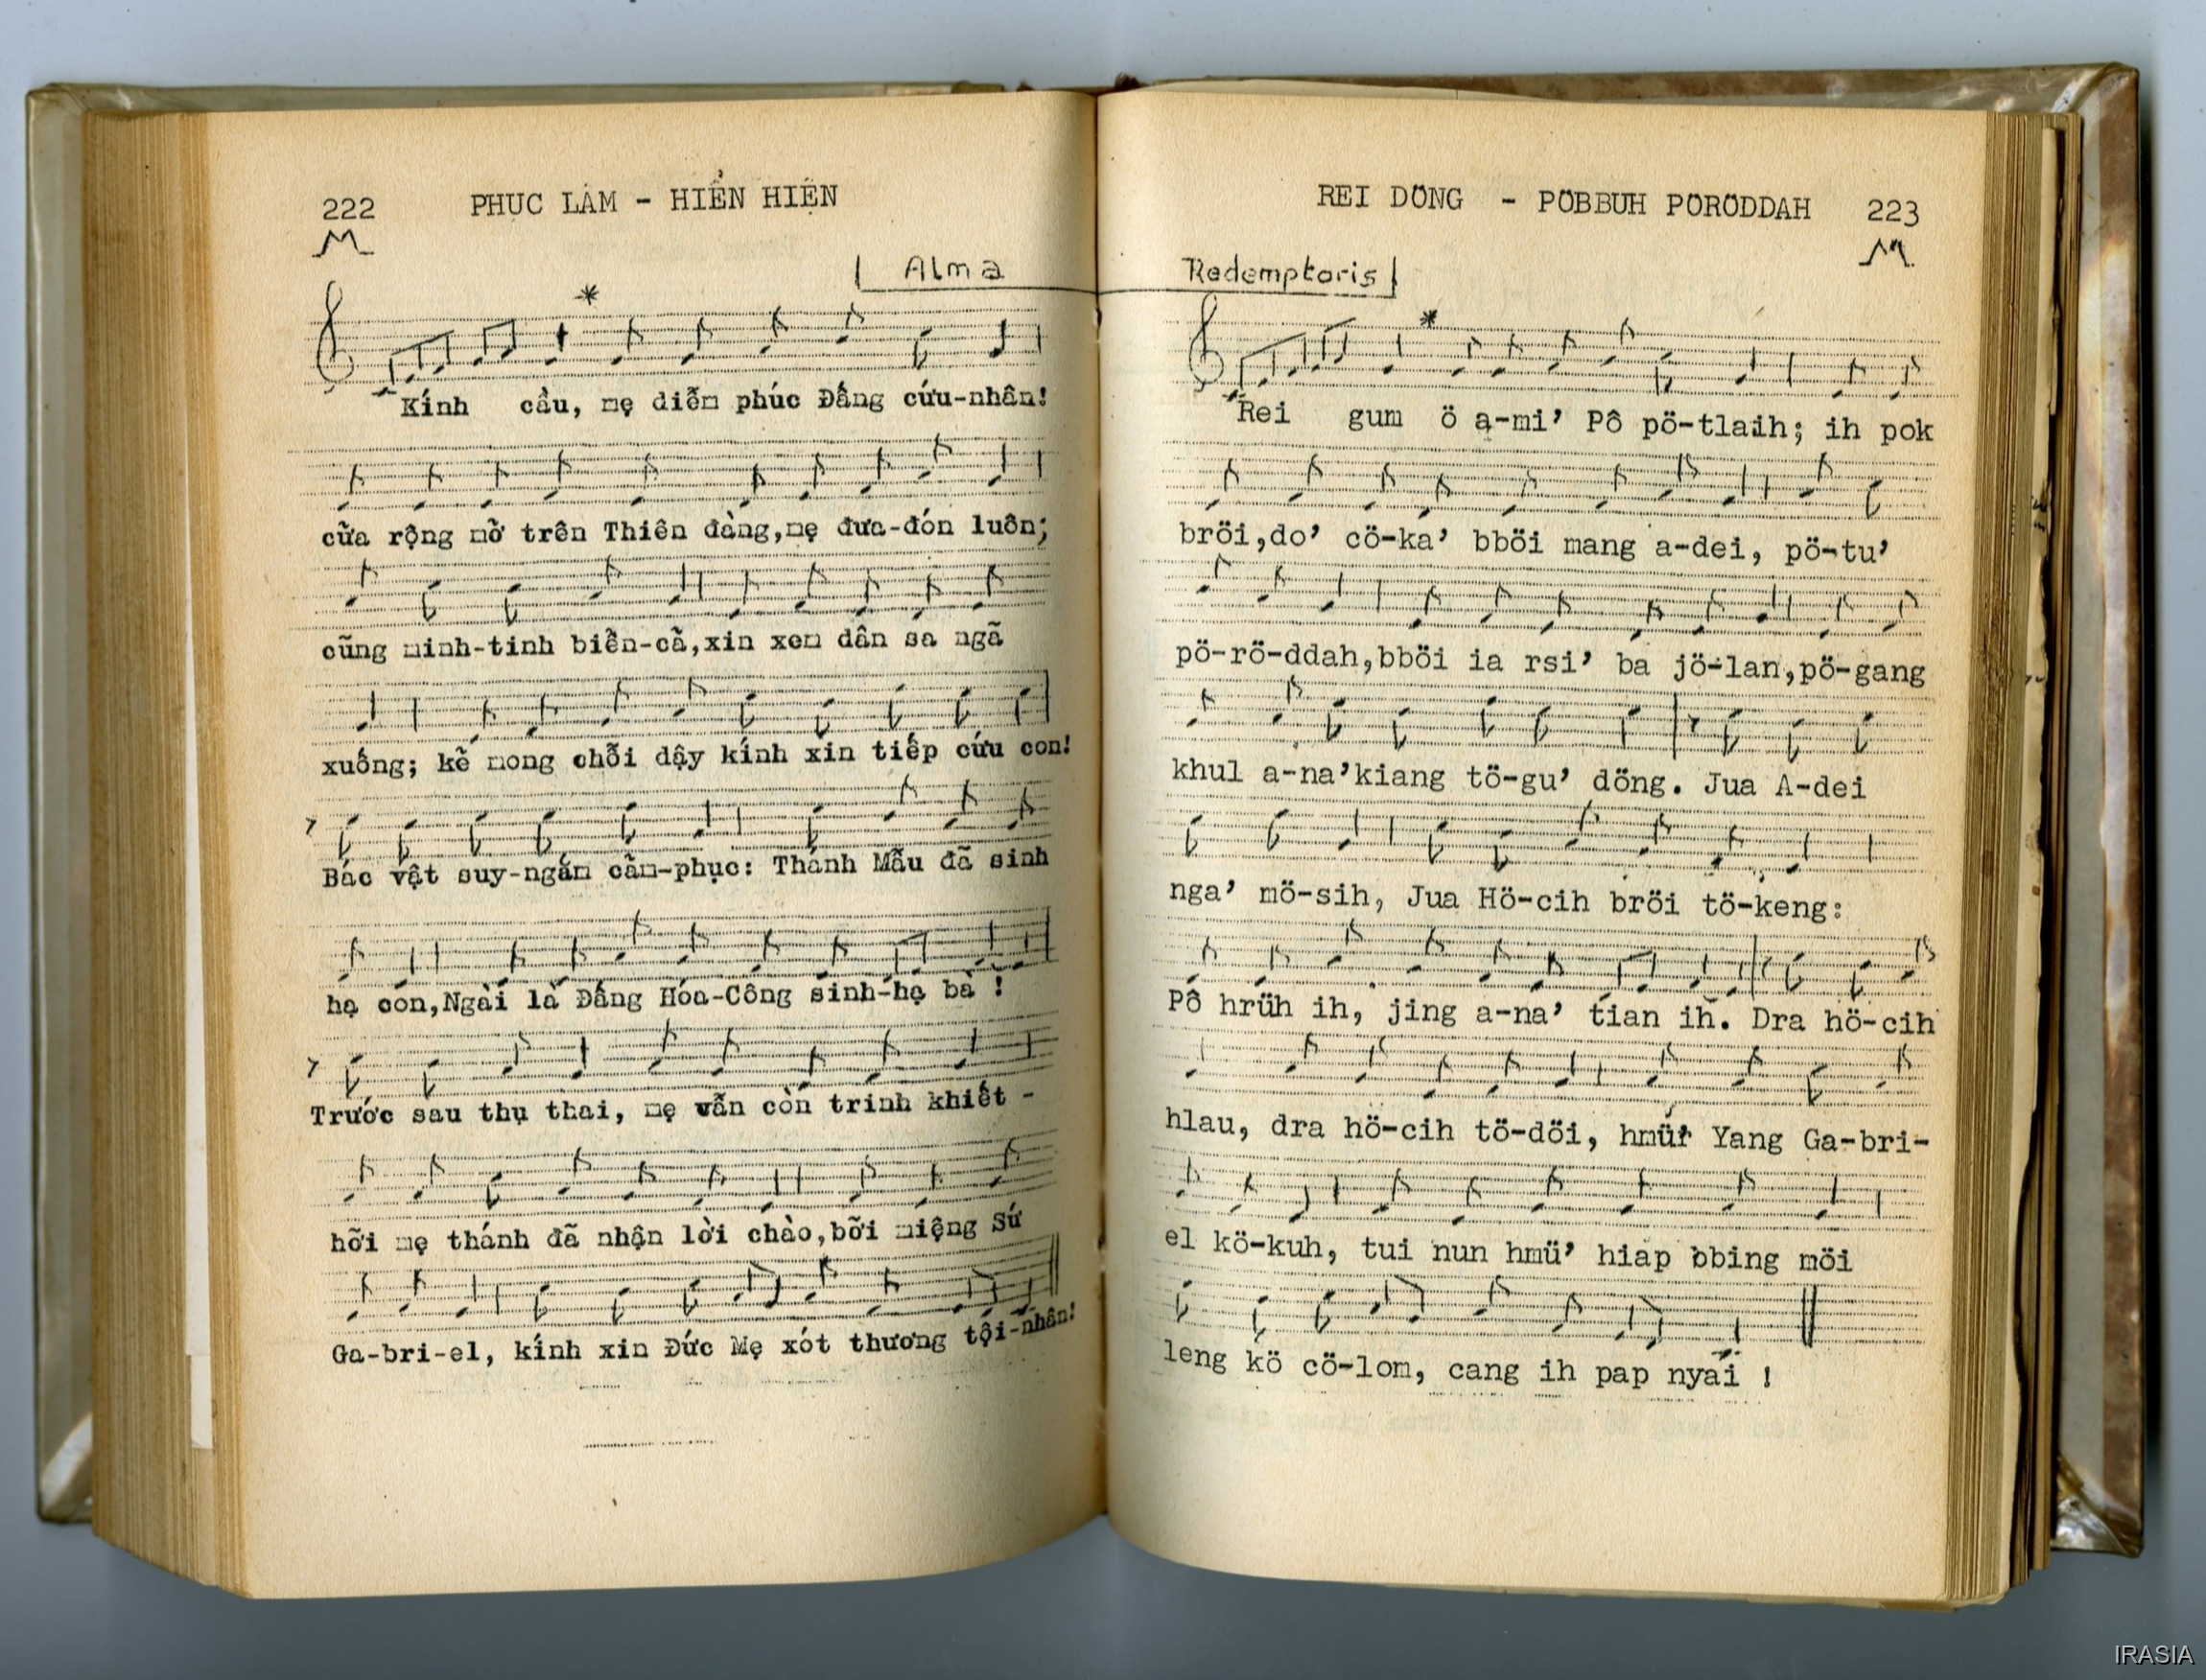 222 PHỤC LÂM - HIỂN HIỆN
M
Alma
*
Kính cầu, mẹ diễm phúc Đấng cứu-nhân!
cửa rộng mở trên Thiên đàng,mẹ đưa-đón luôn;
cũng minh-tinh biển-cả,xin xem dân sa ngã
xuống; kẻ mong chỗi dậy kính xin tiếp cứu con!
Bác vật suy-ngắm cảm-phục: Thánh Mẫu đã sinh
hạ con,Ngài là Đấng Hóa-Công sinh-hạ bà !
Trước sau thụ thai, mẹ vẫn còn trinh khiết -
hỡi mẹ thánh đã nhận lời chào,bởi miệng Sứ
Ga-bri-el, kính xin Đức Mẹ xót thương tội-nhân!
REI DÖNG - PÖBBUH PÖRÖDDAH 223
M
Redemptoris
*
Rei gum ö a-mi’ Pô pö-tlaih; ih pok
bröi,do’ cö-ka’ bböi mang a-dei, pö-tu’
pö-rö-ddah,bböi ia rsi’ ba jö-lan,pö-gang
khul a-na’kiang tö-gu’ döng. Jua A-dei
nga’ mö-sih, Jua Hö-cih bröi tö-keng:
Pô hrüh ih, jing a-na’ tian ih. Dra hö-cih
hlau, dra hö-cih tö-döi, hmü’ Yang Ga-bri-
el kö-kuh, tui nun hmü’ hiap bbing möi
leng kö cö-lom, cang ih pap nyai !
IRASIA